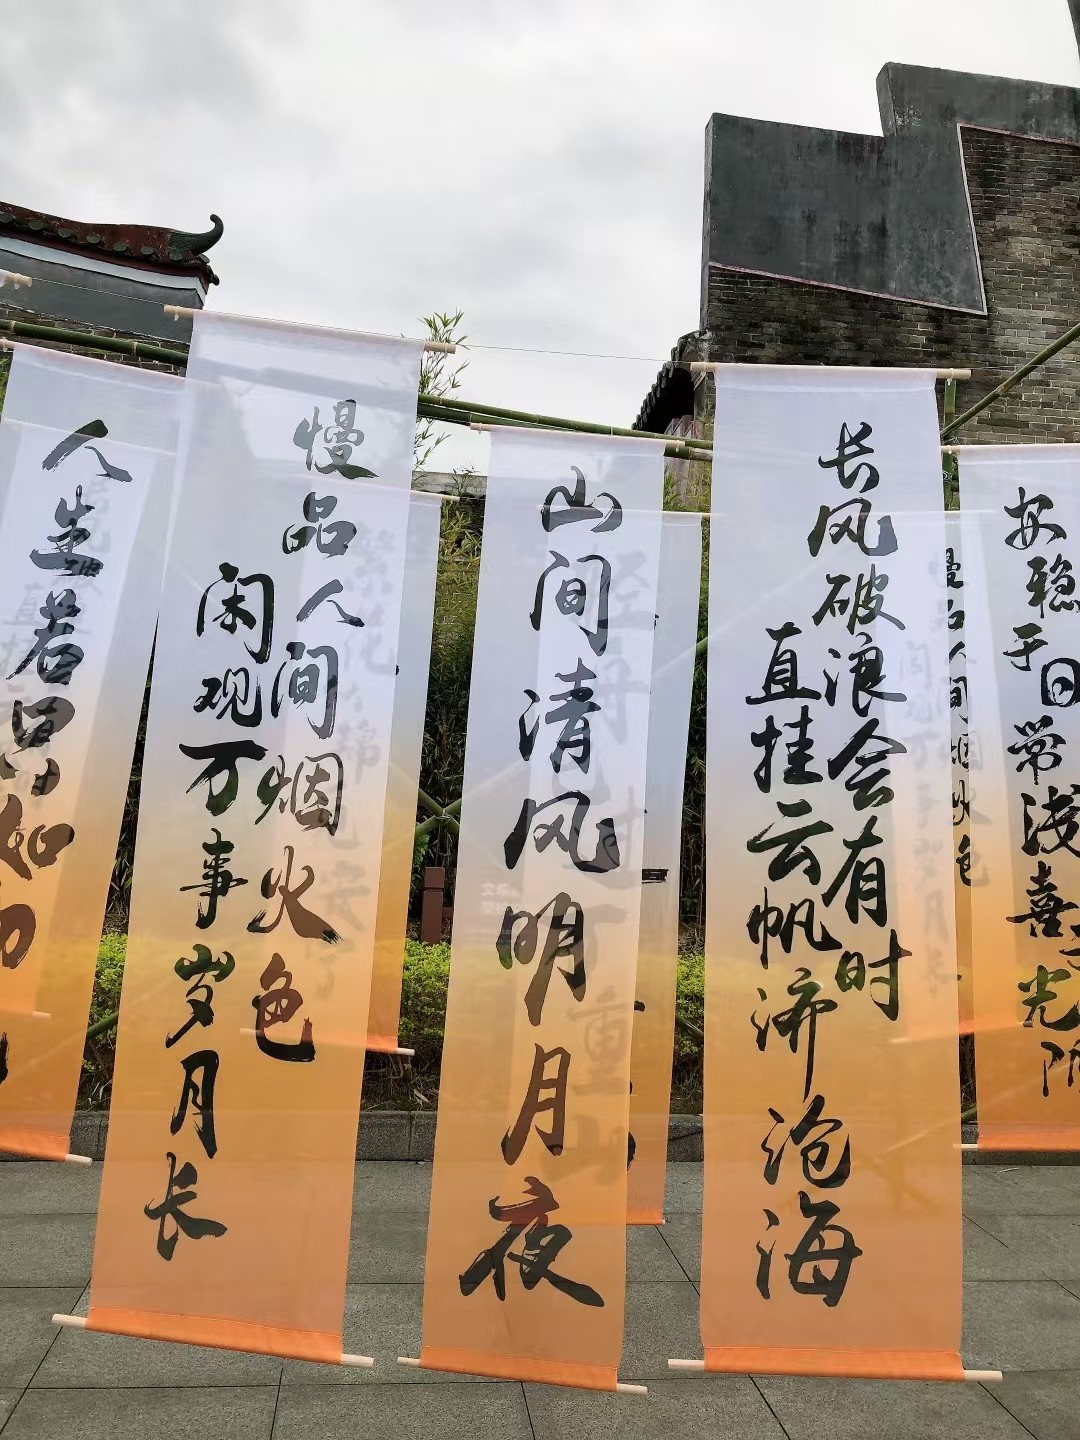 人生若只如初
慢品人间烟火色
闲观万事岁月长
山间清风明月夜
长风破浪会有时
直挂云帆济沧海
安稳于日常
浅喜于光阴
慢品人间烟火色